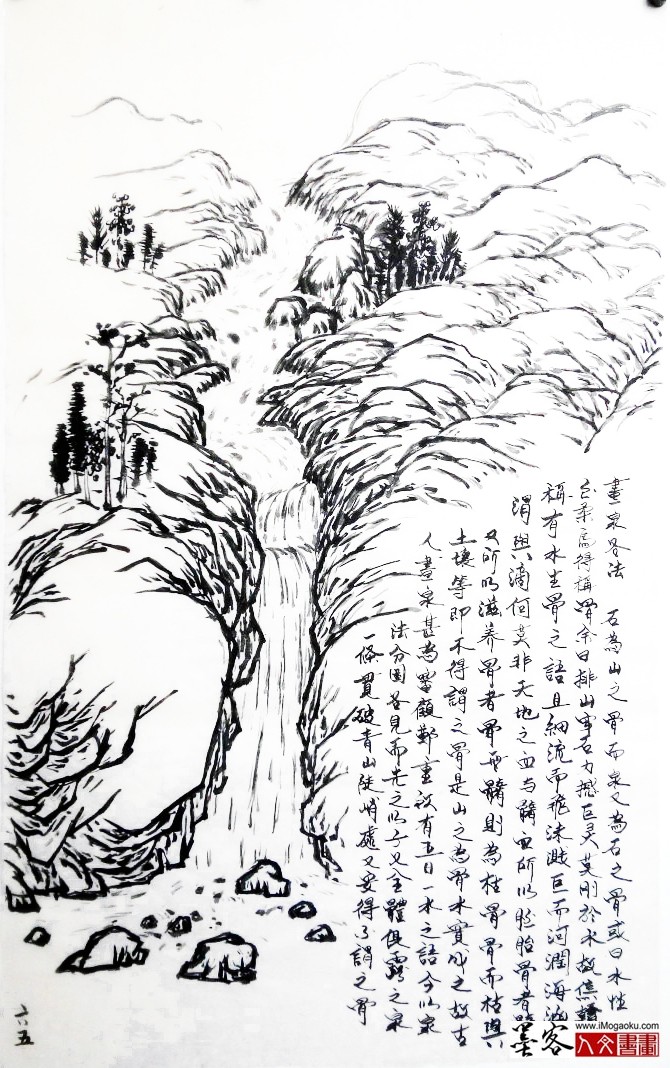 畫泉各法　石為山之骨而泉又為石之骨或曰水性
至柔烏得稱骨余曰排山穿石力撼巨灵莫剛於水故焦贛
稱有水生骨之語且細流而飛沫濺巨而河潤海涵
涓與滴何莫非天地之血与髓血所以胚胎骨者髓
又所以滋养骨者骨無髓則為枯骨骨而枯與
土壤等即不得謂之骨是山之為骨水實成之故古
人畫泉甚為審顧鄭重故有五日一水之語今以泉
法分圖各見而先之以子又全體俱露之泉
一條貫破青山陡峭處又安得不謂之骨
六五
www.iMogaoku.com
墨客
人文書畫